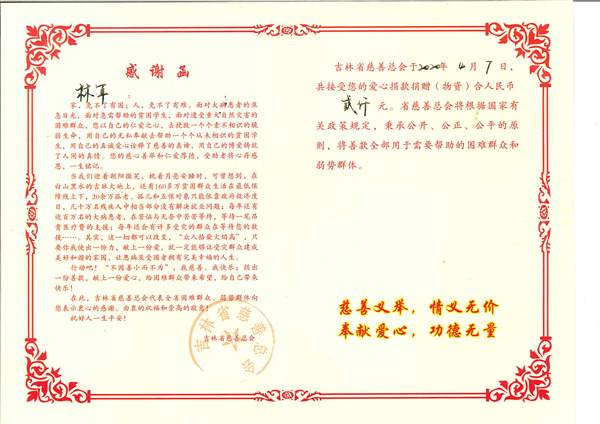 感谢函
林军：
家，免不了有困；人，免不了有难。面对大病患者的焦
急目光，面对急需帮助的贫困学生，面对遭受重大自然灾害的
困难群众，您以自己的仁爱之心，去挽救一个个素不相识的脆
弱生命，用自己的无私奉献去帮助一个个从未相识的贫困学
生，用自己的真诚爱心诠释了慈善的真谛，用自己的博爱铸就
了人间的真情。您的慈心善举和仁爱厚德，受助者将心存感
恩，一生铭记。
当我们迎着朝阳微笑，枕着月亮安睡时，可曾想到，在
白山黑水的吉林大地上，还有160多万贫困群众生活在最低保
障线上下，20余万孤老、孤儿和五保对象只能依靠政府救济度
日，几十万名残疾人中相当部分没有解决就业问题；每年还有
近百万名的大病患者，在苦恼与无奈中苦苦等待，等待一笔昂
贵医疗费的支援；每年还会有许多受灾的群众在等待您的救
援……。其实，这一切都可以改变，“众人拾柴火焰高”，只
要你我使出一份力，献上一份爱，就一定能够让受灾群众建成
美好和谐的家园，让患病及受困者拥有完美幸福的人生。
行动吧！“不因善小而不为”，我慈善、我快乐；捐出
一份善款，献上一份爱心，给困难群众带来希望，给自己带来
快乐！
在此，吉林省慈善总会代表全省困难群众、弱势群体向
您表示衷心的感谢、由衷的祝福和崇高的敬意！
祝好人一生平安！
吉林省慈善总会
吉林省慈善总会
吉林省慈善总会于2020年4月7日，
共接受您的爱心捐款捐赠（物资）合人民币
贰仟元。省慈善总会将根据国家有
关政策规定，秉承公开、公正、公平的原
则，将善款全部用于需要帮助的困难群众和
弱势群体。
慈善义举，情义无价
奉献爱心，功德无量